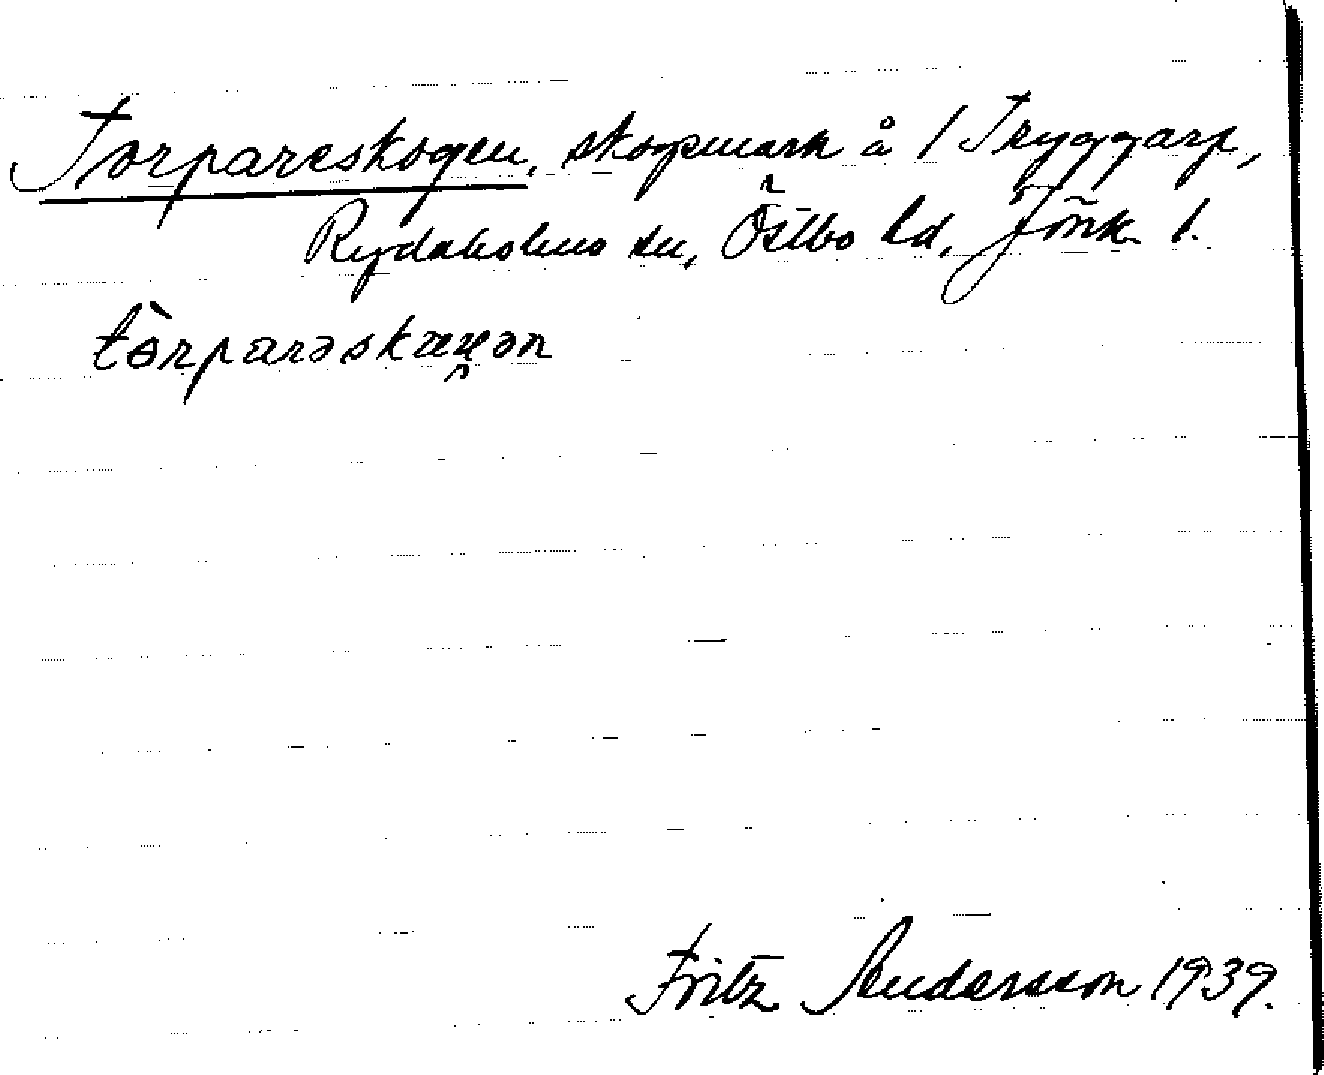 Torpareskogen, skogsmark å 1 Tryggarp,
Rydaholms sn, Östbo hd, Jönk. l.
tòrparəskæɣən
Fritz Andersson 1939.